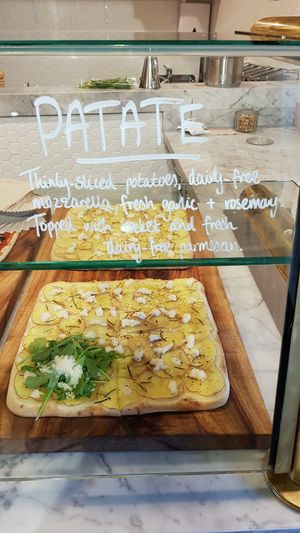 PATATE
Thinly-sliced potatoes, dairy-free
mozzarella, fresh garlic + rosemary.
Topped with rocket and fresh
dairy-free parmesan.